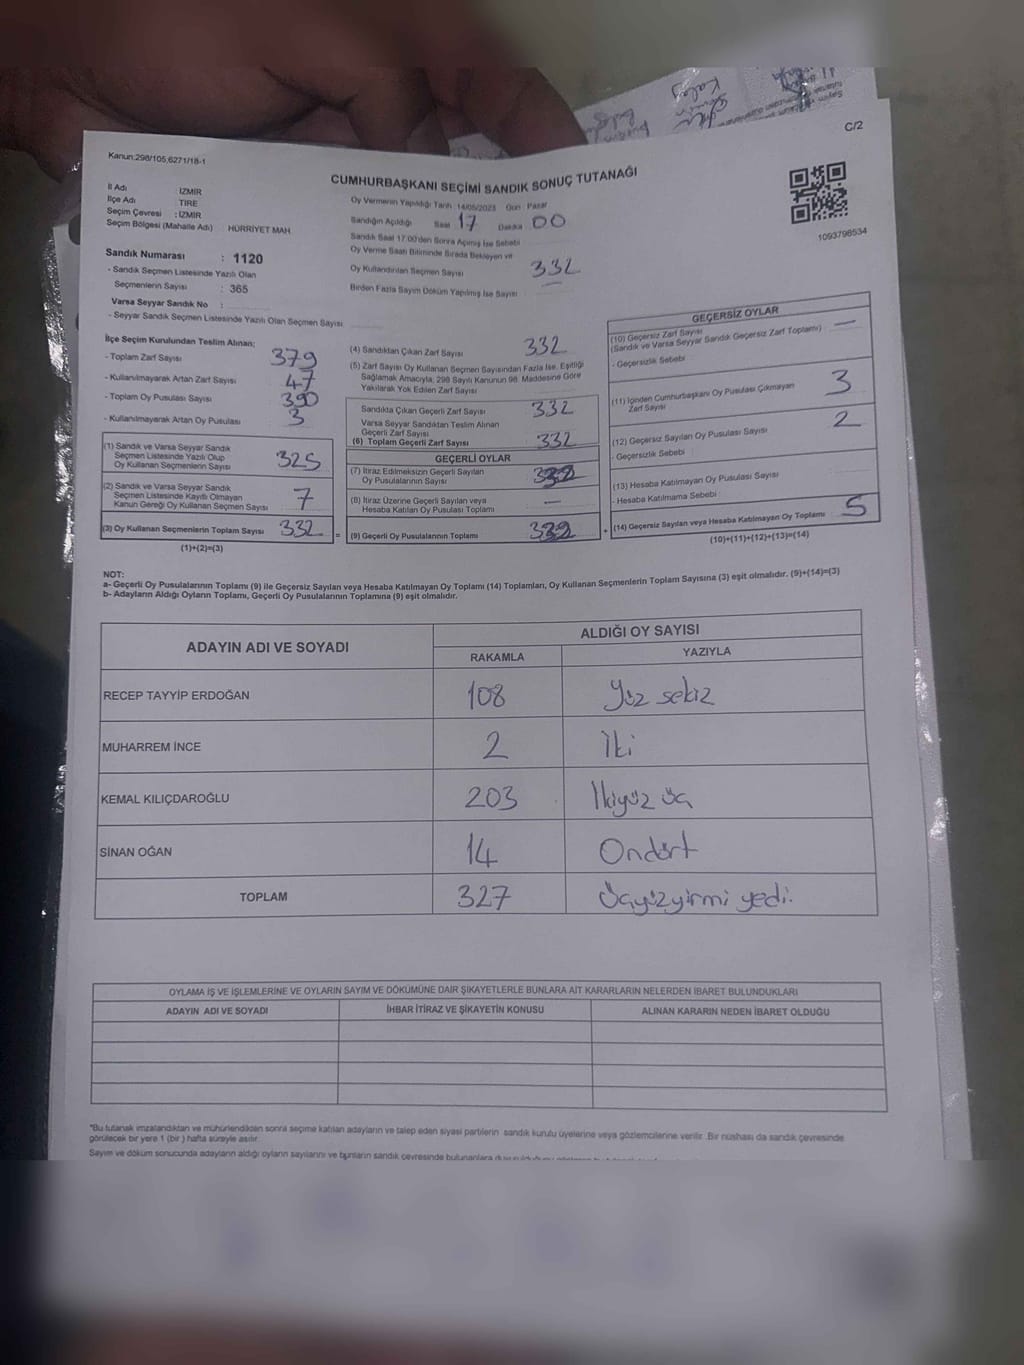 C/2
Kanun:298/105,6271/18-1
CUMHURBAŞKANI SEÇİMİ SANDIK SONUÇ TUTANAĞI
İl Adı : İZMİR
İlçe Adı : TİRE
Seçim Çevresi : İZMİR
Seçim Bölgesi (Mahalle Adı) HÜRRİYET MAH.
Oy Vermenin Yapıldığı Tarih : 14/05/2023 Gün : Pazar
Sandığın Açıldığı Saat 17 Dakika 00
Sandık Saat 17.00'den Sonra Açılmış İse Sebebi
Oy Verme Saati Bitiminde Sırada Bekleyen
Oy Kullandırılan Seçmen Sayısı 332
Birden Fazla Sayım Döküm Yapılmış İse Sayısı
1093798534
Sandık Numarası : 1120
- Sandık Seçmen Listesinde Yazılı Olan
Seçmenlerin Sayısı : 365
Varsa Seyyar Sandık No :
- Seyyar Sandık Seçmen Listesinde Yazılı Olan Seçmen Sayısı
İlçe Seçim Kurulundan Teslim Alınan;
- Toplam Zarf Sayısı 379
- Kullanılmayarak Artan Zarf Sayısı 47
- Toplam Oy Pusulası Sayısı 390
- Kullanılmayarak Artan Oy Pusulası 3
(1) Sandık ve Varsa Seyyar Sandık
Seçmen Listesinde Yazılı Olup
Oy Kullanan Seçmenlerin Sayısı 325
(2) Sandık ve Varsa Seyyar Sandık
Seçmen Listesinde Kayıtlı Olmayan
Kanun Gereği Oy Kullanan Seçmen Sayısı 7
(3) Oy Kullanan Seçmenlerin Toplam Sayısı 332
(1)+(2)=(3)
(4) Sandıktan Çıkan Zarf Sayısı 332
(5) Zarf Sayısı Oy Kullanan Seçmen Sayısından Fazla İse, Eşitliği
Sağlamak Amacıyla; 298 Sayılı Kanunun 98. Maddesine Göre
Yakılarak Yok Edilen Zarf Sayısı
Sandıkta Çıkan Geçerli Zarf Sayısı 332
Varsa Seyyar Sandıktan Teslim Alınan
Geçerli Zarf Sayısı
(6) Toplam Geçerli Zarf Sayısı 332
GEÇERLİ OYLAR
(7) İtiraz Edilmeksizin Geçerli Sayılan
Oy Pusulalarının Sayısı
(8) İtiraz Üzerine Geçerli Sayılan veya
Hesaba Katılan Oy Pusulası Toplamı —
= (9) Geçerli Oy Pusulalarının Toplamı
GEÇERSİZ OYLAR
(10) Geçersiz Zarf Sayısı
(Sandık ve Varsa Seyyar Sandık Geçersiz Zarf Toplamı) —
- Geçersizlik Sebebi :
(11) İçinden Cumhurbaşkanı Oy Pusulası Çıkmayan
Zarf Sayısı 3
(12) Geçersiz Sayılan Oy Pusulası Sayısı 2
- Geçersizlik Sebebi :
(13) Hesaba Katılmayan Oy Pusulası Sayısı
- Hesaba Katılmama Sebebi :
+ (14) Geçersiz Sayılan veya Hesaba Katılmayan Oy Toplamı 5
(10)+(11)+(12)+(13)=(14)
NOT:
a- Geçerli Oy Pusulalarının Toplamı (9) ile Geçersiz Sayılan veya Hesaba Katılmayan Oy Toplamı (14) Toplamları, Oy Kullanan Seçmenlerin Toplam Sayısına (3) eşit olmalıdır. (9)+(14)=(3)
b- Adayların Aldığı Oyların Toplamı, Geçerli Oy Pusulalarının Toplamına (9) eşit olmalıdır.
ADAYIN ADI VE SOYADI ALDIĞI OY SAYISI
RAKAMLA YAZIYLA
RECEP TAYYİP ERDOĞAN 108 Yüz sekiz
MUHARREM İNCE 2 İki
KEMAL KILIÇDAROĞLU 203 İkiyüz üç
SİNAN OĞAN 14 Ondört
TOPLAM 327 Üçyüzyirmi yedi.
OYLAMA İŞ VE İŞLEMLERİNE VE OYLARIN SAYIM VE DÖKÜMÜNE DAİR ŞİKAYETLERLE BUNLARA AİT KARARLARIN NELERDEN İBARET BULUNDUKLARI
ADAYIN ADI VE SOYADI İHBAR İTİRAZ VE ŞİKAYETİN KONUSU ALINAN KARARIN NEDEN İBARET OLDUĞU
*Bu tutanak imzalandıktan ve mühürlendikten sonra seçime katılan adayların ve talep eden siyasi partilerin sandık kurulu üyelerine veya gözlemcilerine verilir. Bir nüshası da sandık çevresinde
görülecek bir yere 1 (bir) hafta süreyle asılır.
Sayım ve döküm sonucunda adayların aldığı oyların sayılarını ve bunların sandık çevresinde bulunanlara